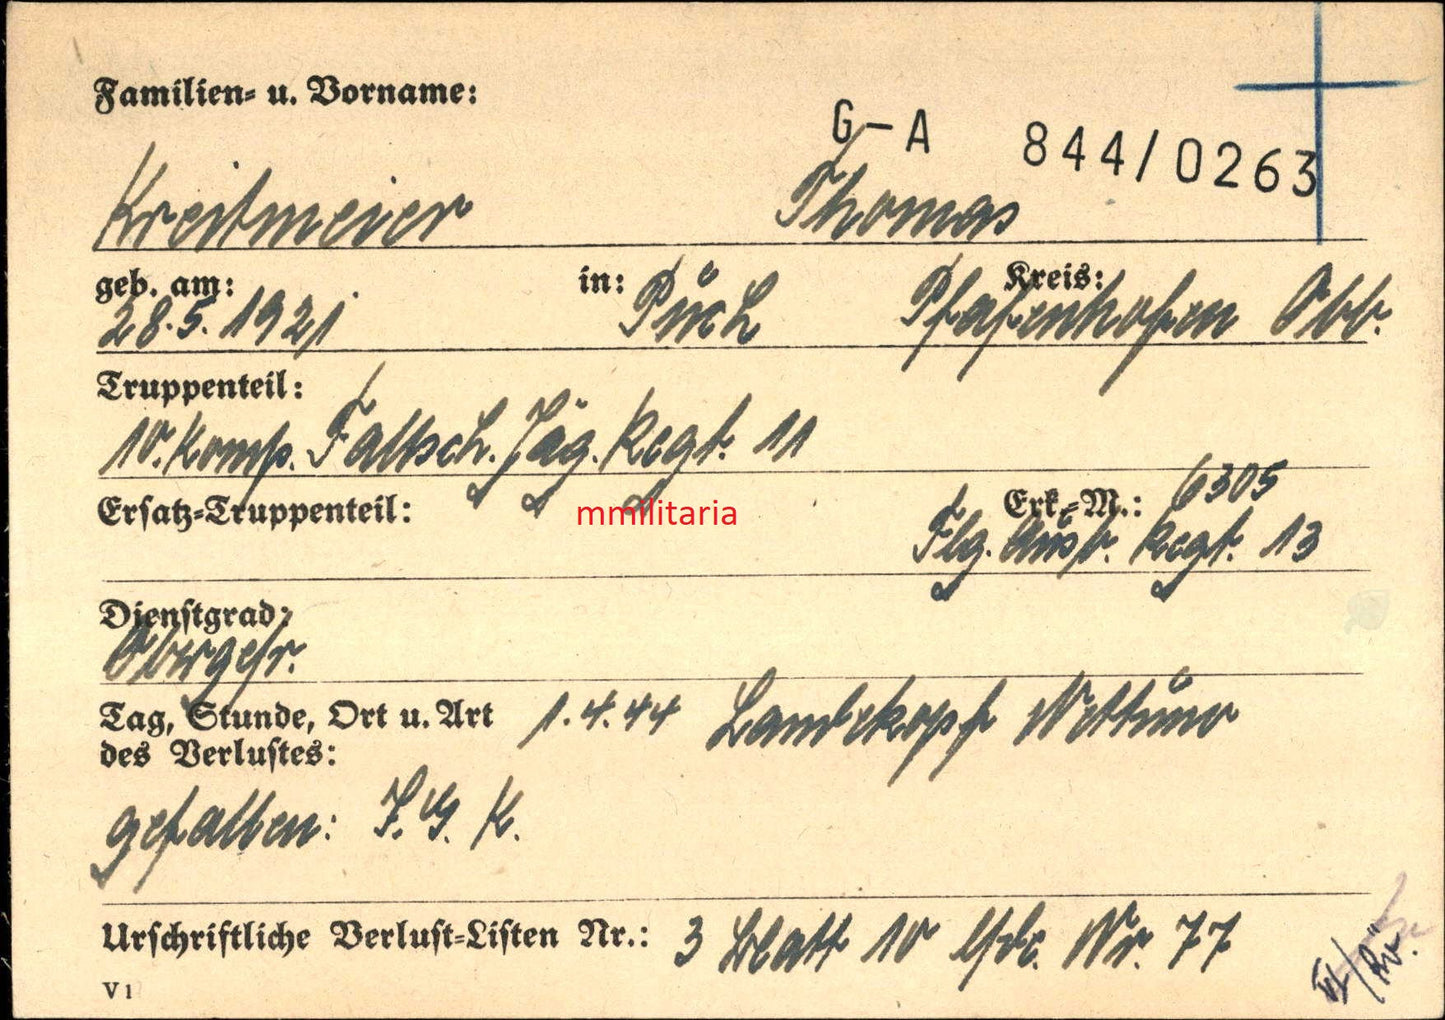 Familien- u. Vorname:
G-A 844/0263
Kreitmeier Thomas
geb. am: in: Kreis:
28.5.1921 Püch Pfafenhofen Obb.
Truppenteil:
10. Komp. Fallsch. Jäg. Regt. 11
Ersatz-Truppenteil: Erk.-M.: 6305
mmilitaria
Flg. Ausb. Regt. 13
Dienstgrad:
Obergefr.
Tag, Stunde, Ort u. Art 1.4.44 Landekopf Nettuno
des Verlustes:
gefallen: I.G. K.
Urschriftliche Verlust-Listen Nr.: 3 Blatt 10 lfde. Nr. 77
V 1